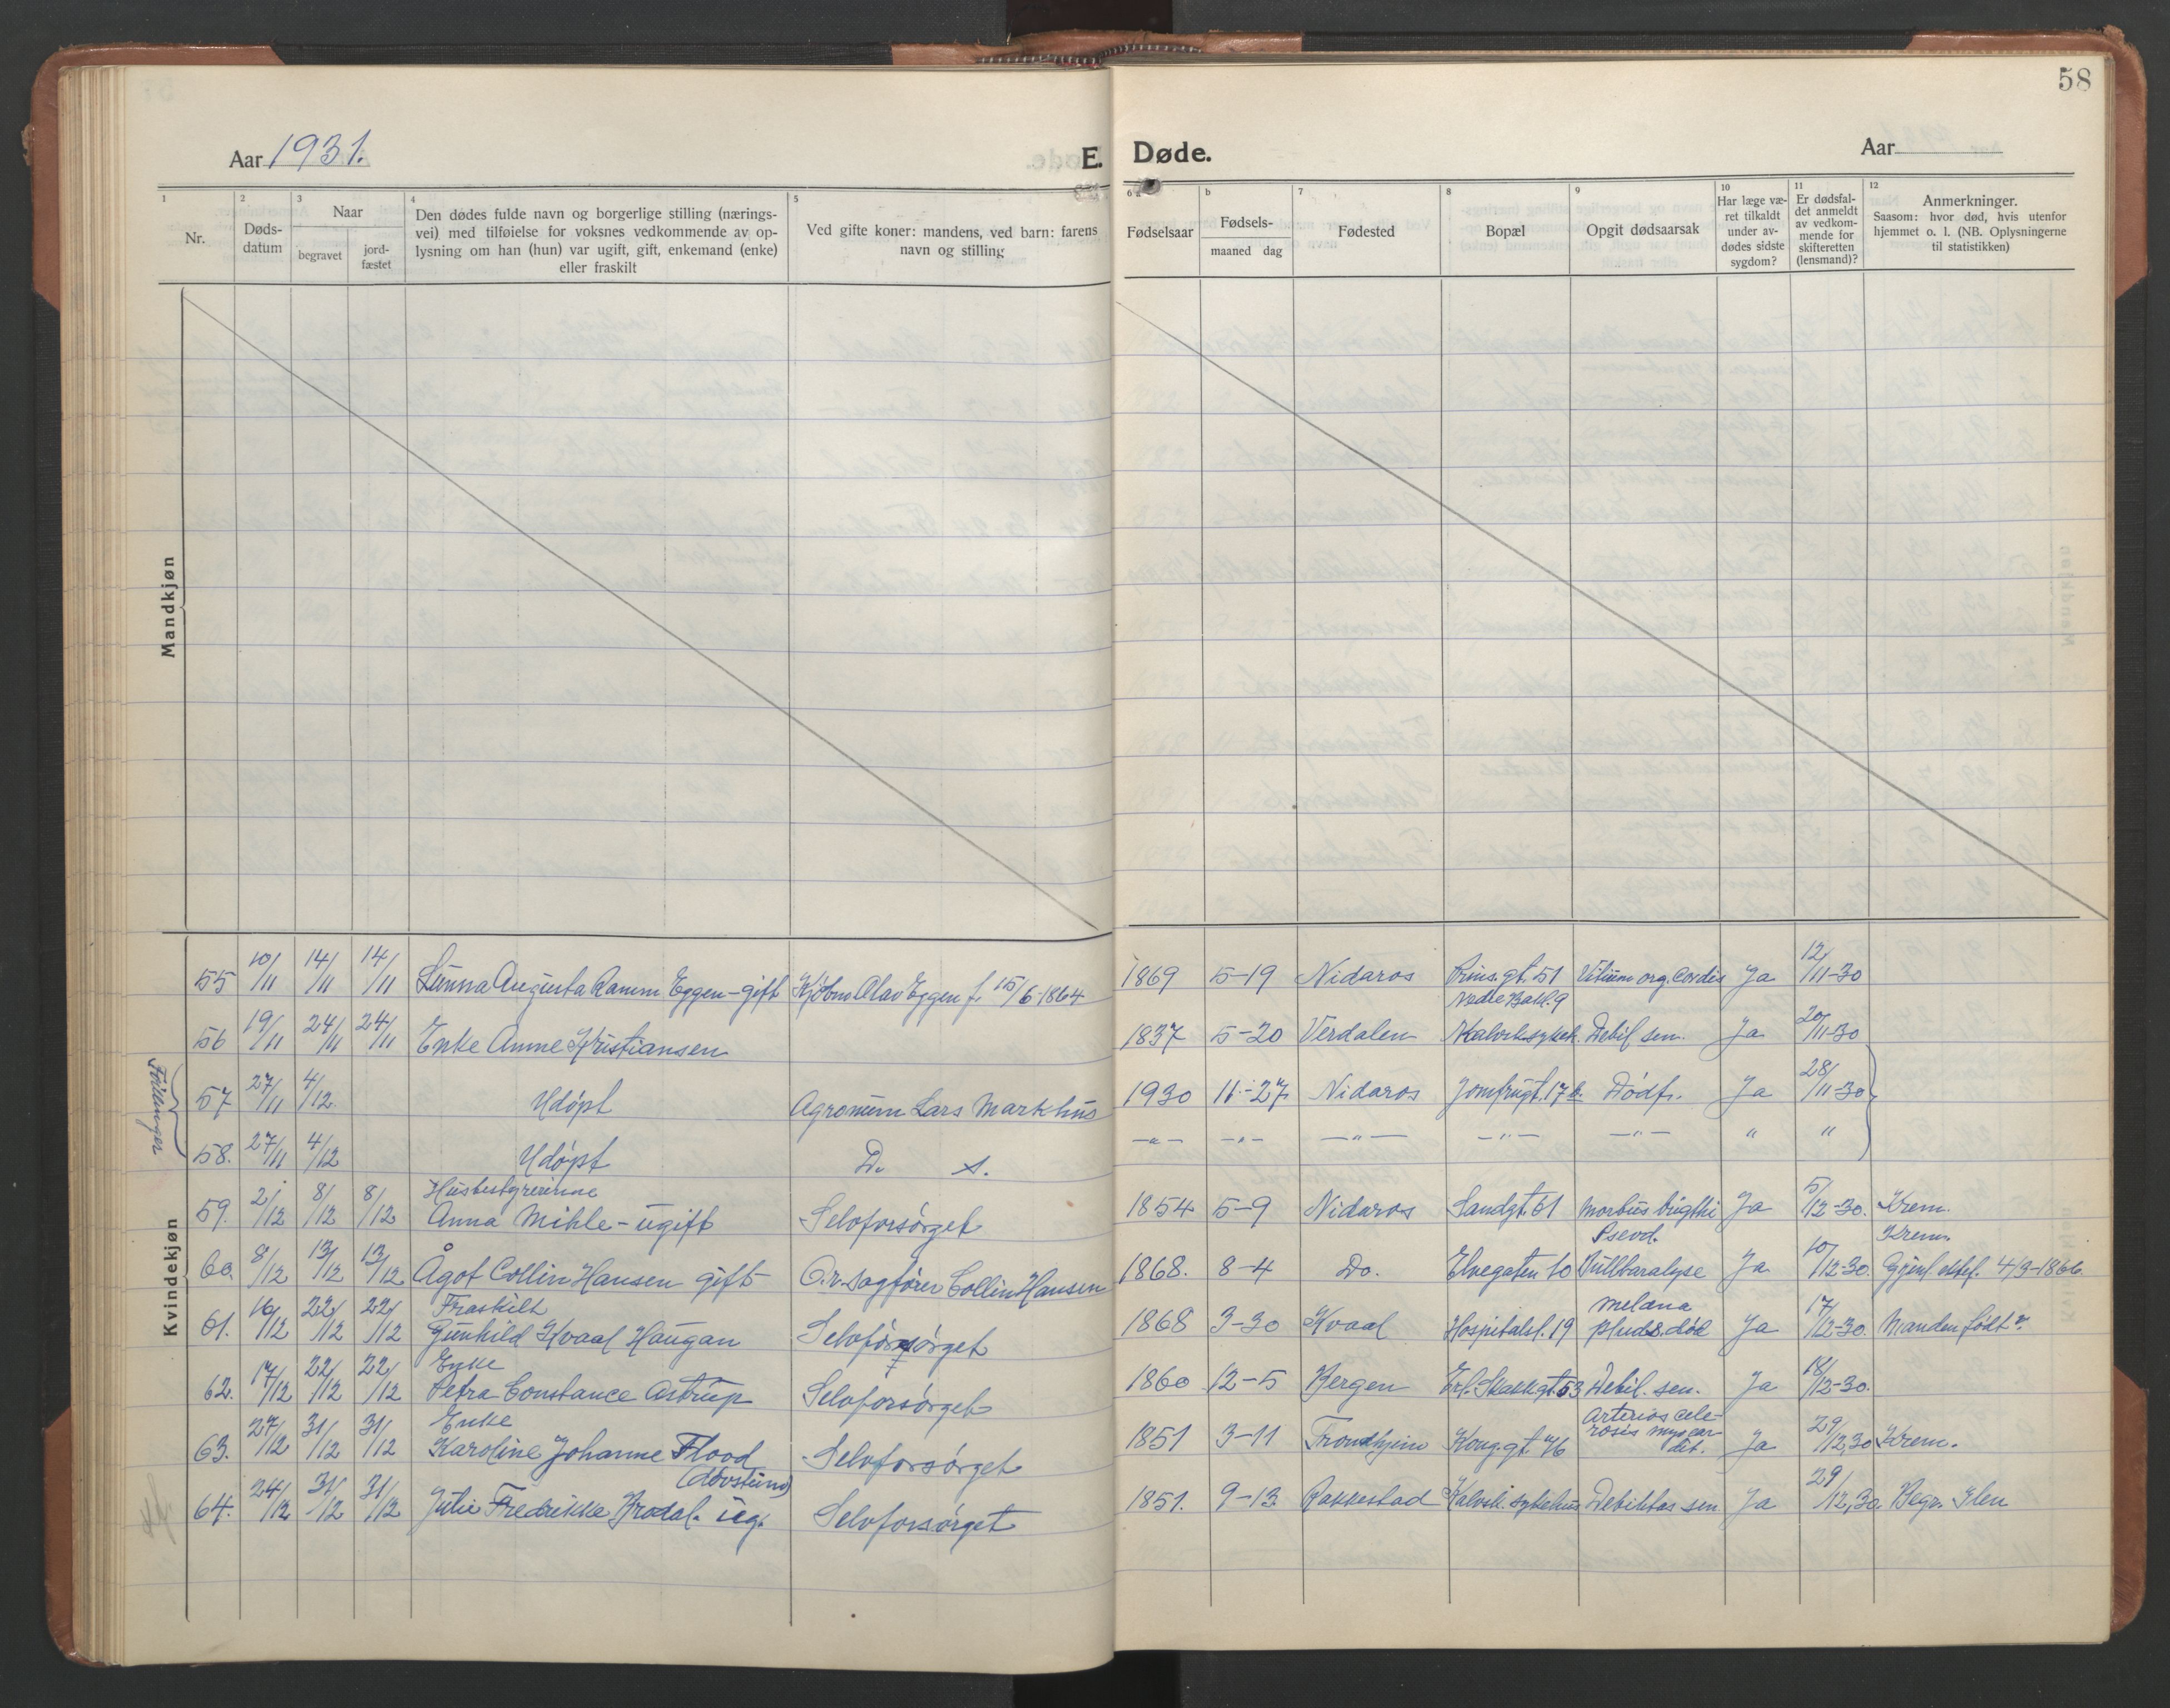 58
Aar 1931.
E. Døde.
Aar
1 2 3 4 5 6 a b 7 8 9 10 11 12
Nr.
Døds-
datum
Naar
begravet
jord-
fæstet
Den dødes fulde navn og borgerlige stilling (nærings-
vei) med tilføielse for voksnes vedkommende av op-
lysning om han (hun) var ugift, gift, enkemand (enke)
eller fraskilt
Ved gifte koner: mandens, ved barn: farens
navn og stilling
Fødselsaar
Fødsels-
maaned dag
Fødested
Bopæl
Opgit dødsaarsak
Har læge væ-
ret tilkaldt
under av-
dødes sidste
sygdom?
Er dødsfal-
det anmeldt
av vedkom-
mende for
skifteretten
(lensmand)?
Anmerkninger.
Saasom: hvor død, hvis utenfor
hjemmet o. l. (NB. Oplysningerne
til statistikken)
Mandkjøn
Kvindekjøn
55 10/11 14/11 14/11 Augusta Ramm Eggen - gift Kjøbm Olav Eggen f. 15/6-1864 1869 5-19 Nidaros Prins.gt. 51 Vitium org. Cordis Ja 12/11-30
Nedre Bakl. 9
56 19/11 24/11 24/11 Enke Anne Kristiansen 1837 5-20 Verdalen Kalvsk.sykeh. Debil sen. Ja 20/11-30
Tvillinger
57 27/11 4/12 Udøpt Agronum Lars Markhus 1930 11-27 Nidaros Jomfrugt. 17 b. Dødf. Ja 28/11-30
58. 27/11 4/12 Udøpt D. s. —"— —"— —"— —"— —"— " "
Husbestyrerinne
59. 2/12 8/12 8/12 Anna Mihle - ugift Selvforsørget 1854 5-9 Nidaros Sandgt. 61 Morbus brigthi Ja 5/12-30. Krem.
Psevd. Krem.
60. 8/12 13/12 13/12 Ågot Collin Hansen gift O.r.sagfører Collin Hansen 1868. 8-4 Do. Elvegaten 10 Bullbaralyse Ja 10/12-30. Gjenl ektef. 4/9-1866.
Fraskilt Melæna
61. 16/12 22/12 22/12 Gunhild Kvaal Haugan Selvforsørget 1868 3-30 Kvaal Hospitalsl. 19 pluds. død Ja 17/12-30. Manden født?
Enke
62. 17/12 22/12 22/12 Petra Constance Astrup Selvforsørget 1860 12-5 Bergen Erl. Skakkgt. 53 Debil. sen. Ja 18/12-30.
Enke Arterios cele-
63. 27/12 31/12 31/12 Karoline Johanne Flood Selvforsørget 1851 3-11 Trondhjem Kong.gt. 46 rosis myocar-
dit. Ja 29/12,30 Krem.
(døvstum)
64. 24/12 31/12 31/12 Julie Fredrikke Brodal. ug. Selvforsørget 1851. 9-13 Rakkestad Kalvsk. sykehus Debilitas sen. Ja 29/12,30. Begr. Ilen